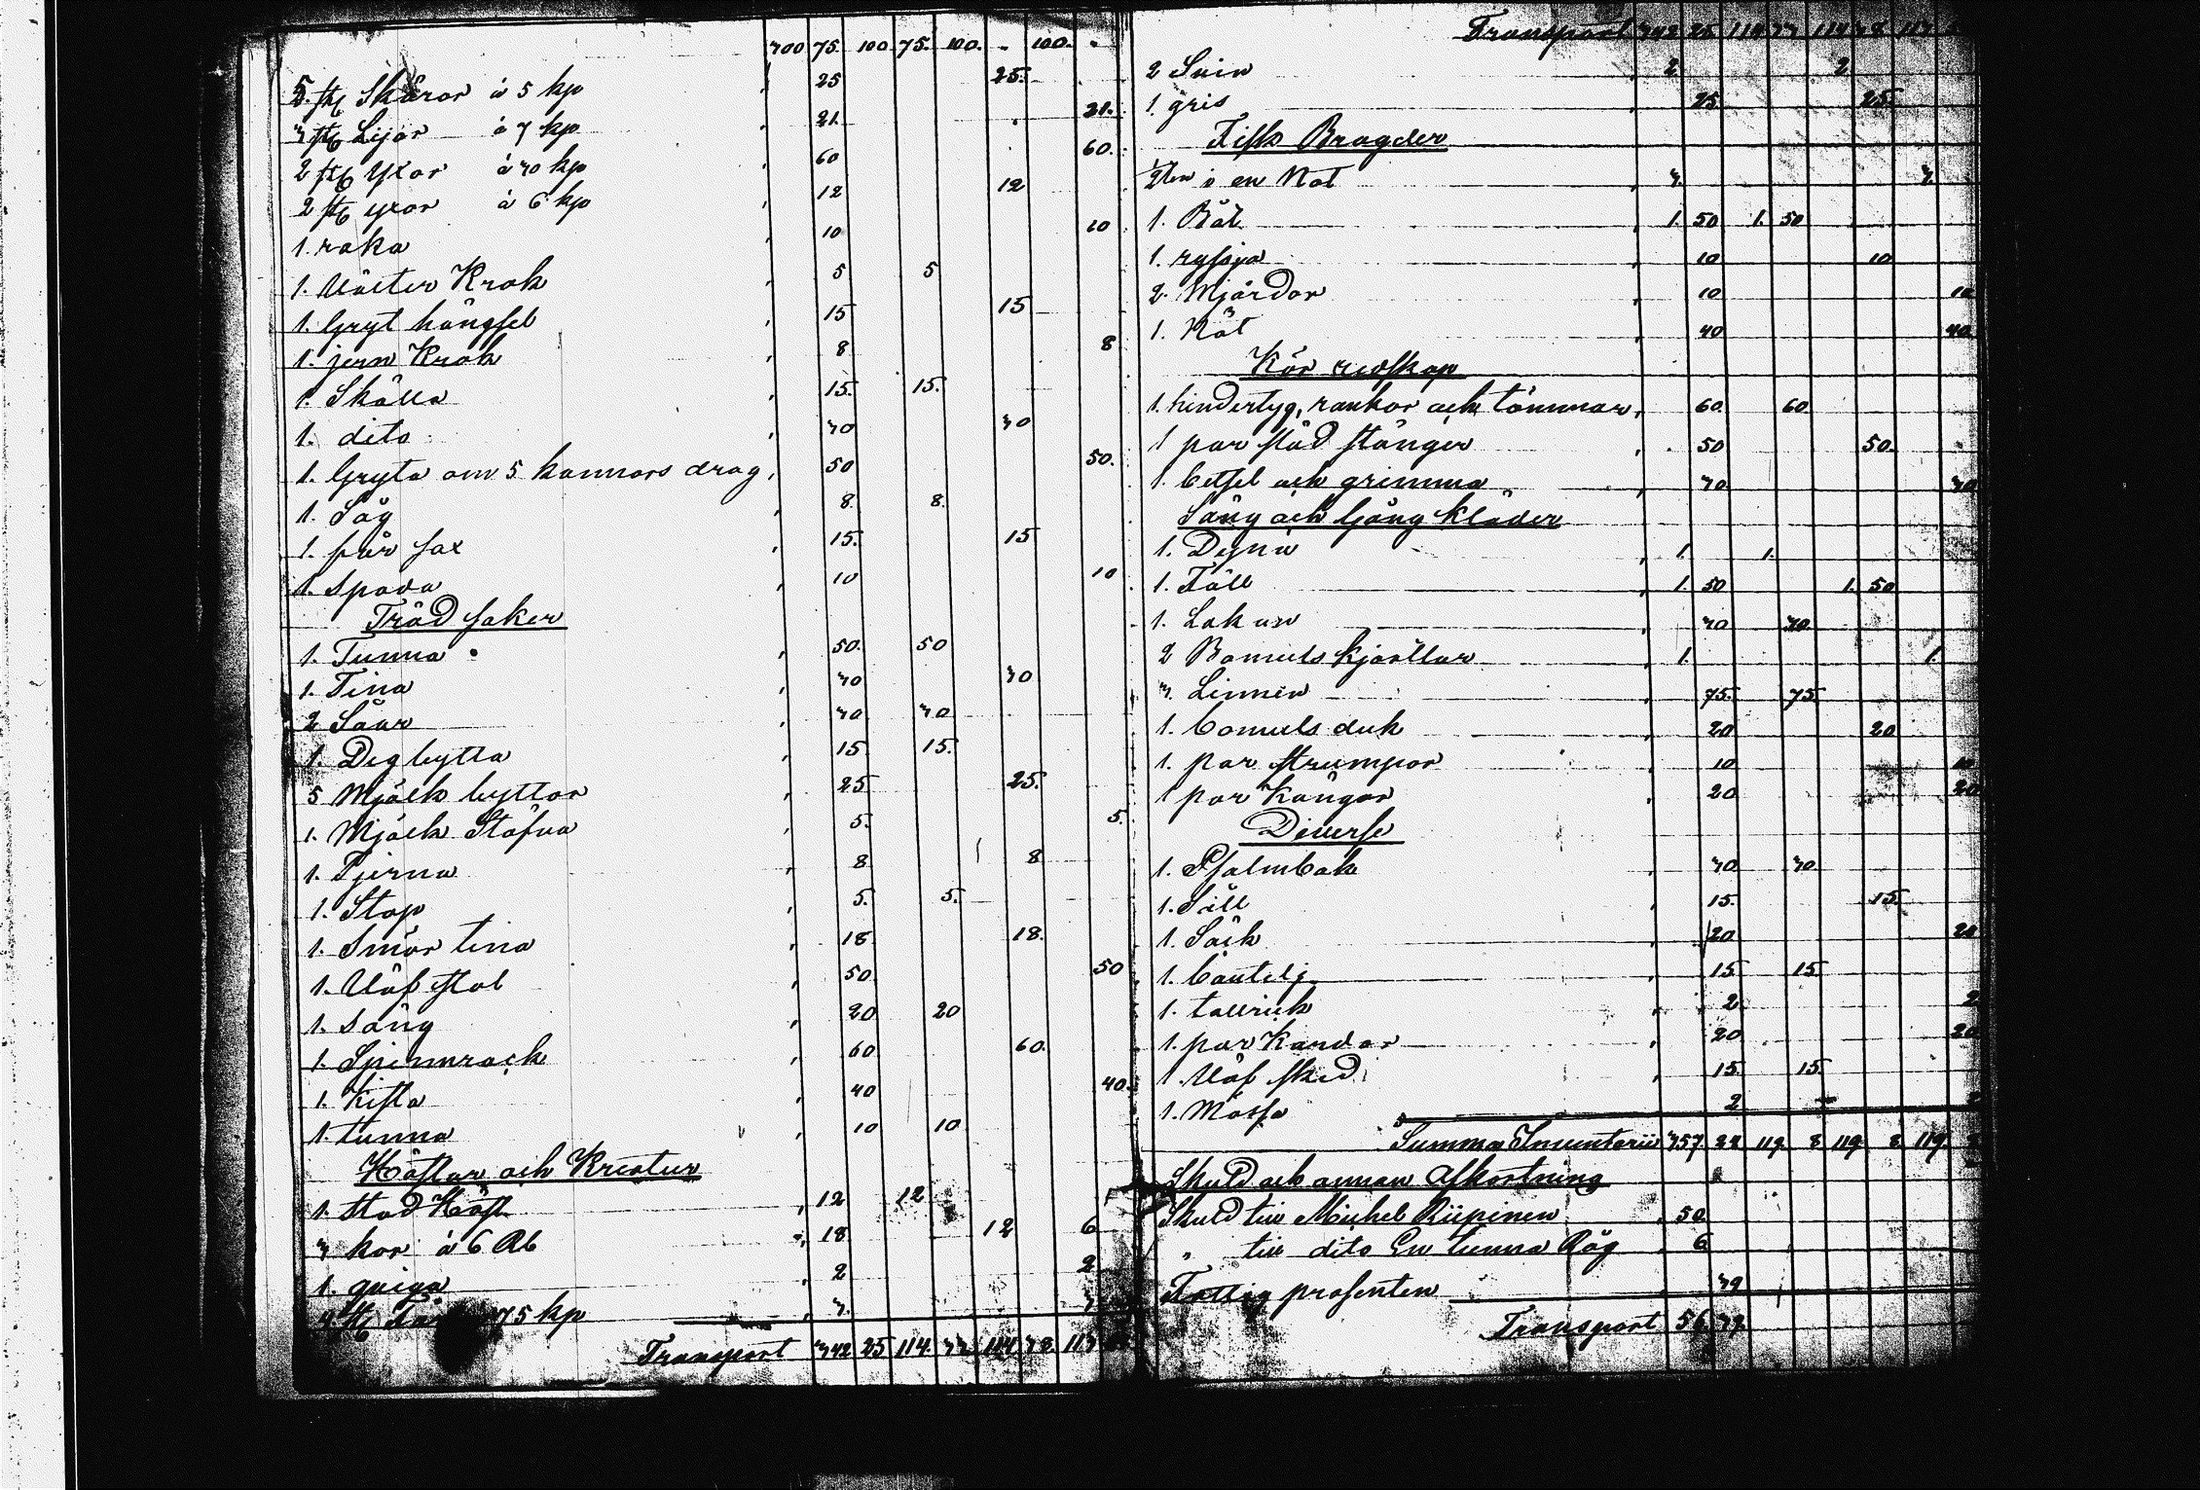 700 75. 100. 75. 100. - 100. -
5. st Skäror à 5 kp , 25 25.
3 st Lijor à 7 kp , 21. 21.
2 st Yxor à 30 kp , 60 60.
2 st yxor à 6 kp , 12 12
1. raka , 10 10
1. Uäster Krok , 5 5
1. Gryt hängsel , 15 15
1. jern Krok , 8 8
1. Skälla , 15. 15.
1. dito , 30 30
1. Gryta om 5 kannors drag , 50 50.
1. Såg , 8. 8.
1. får sax , 15. 15
1. spada , 10 10
Träd saker
1. Tunna , 50. 50
1. Tina , 30 30
2 Såar , 30 30
1. Deg bytta , 15 15.
5 Mjölk byttor , 25 25.
1. Mjölk Stäfva , 5. 5.
1. Tjerna , 8 8
1. Stop , 5. 5.
1. Smör tina , 18 18.
1. Uäf stol , 50. 50
1. säng , 20 20
1. Spinnrock , 60 60.
1. Kista , 40 40.
1. tunna , 10 10
Hästar och Kreatur
1. Stod Häst , 12 12
3 kor à 6 Rb , 18. 12 6
1. quiga , 2 2
4 st 75 kp , 3. 3
Transport 342 25 114. 33 114 78 113

Transport 342 25 114 33 114 78 113
2 Svin , 2 2
1. gris , 25 25.
Fisk Bragder
1/2ten i en Not , 3. 3.
1. Båt , 1. 50 1. 50
1. ryssja , 10 10
2. Mjärdor , 10 10
1. Nät , 40 40
Kör redskap
1. hindertyg, rankor och tömmar , 60. 60
1 par städ stänger , 50 50.
1. betsel och grimma , 30 30
Säng och Gång Kläder
1. Dyna , 1. 1.
1. Fäll , 1. 50 1. 50
1. Lakan , 30 30
2 Bomuls kjortlar , 1. 1.
3. Linnen , 75. 75
1. bomuls duk , 20 20
1. par strumpor , 10 10
1 par Kängor , 20 20
Diverse
1. Psalmbok , 30 30
1. Såll , 15. 15.
1. Säck , 20 20
1. boutelj , 15 15
1. tallrick , 2 2
1. par Kardor , 20 20
1. Uäf sked , 15. 15.
1. Mössa 2
Summa Inventarii 357. 24 119. 8 119. 8 119.
Skuld och annan Afkortning
Skuld till Michel Riipinen , 50
" till dito En tunna Råg , 6
Fattig prosenten 39
Transport 56 39.